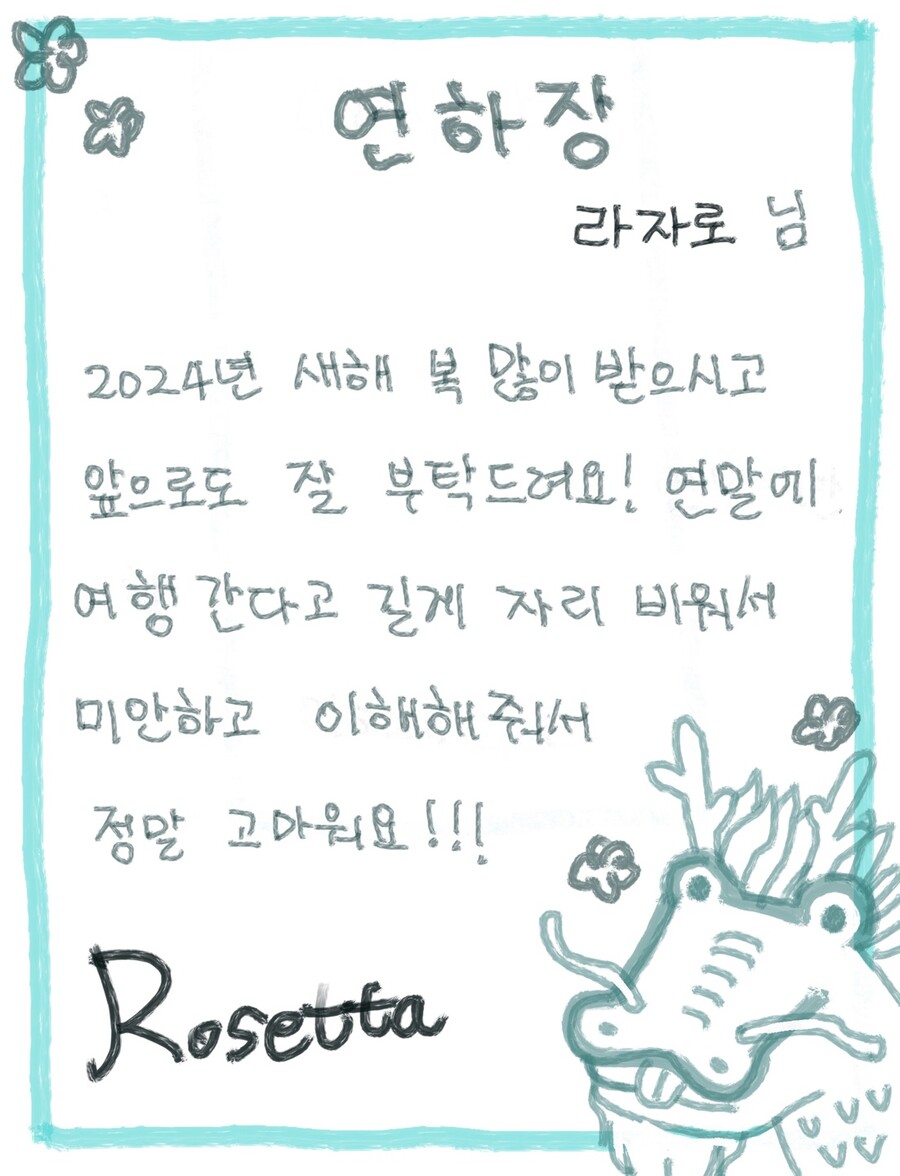 연하장
라자로 님
2024년 새해 복 많이 받으시고
앞으로도 잘 부탁드려요! 연말에
여행 간다고 길게 자리 비워서
미안하고 이해해줘서
정말 고마워요!!!
Rosetta